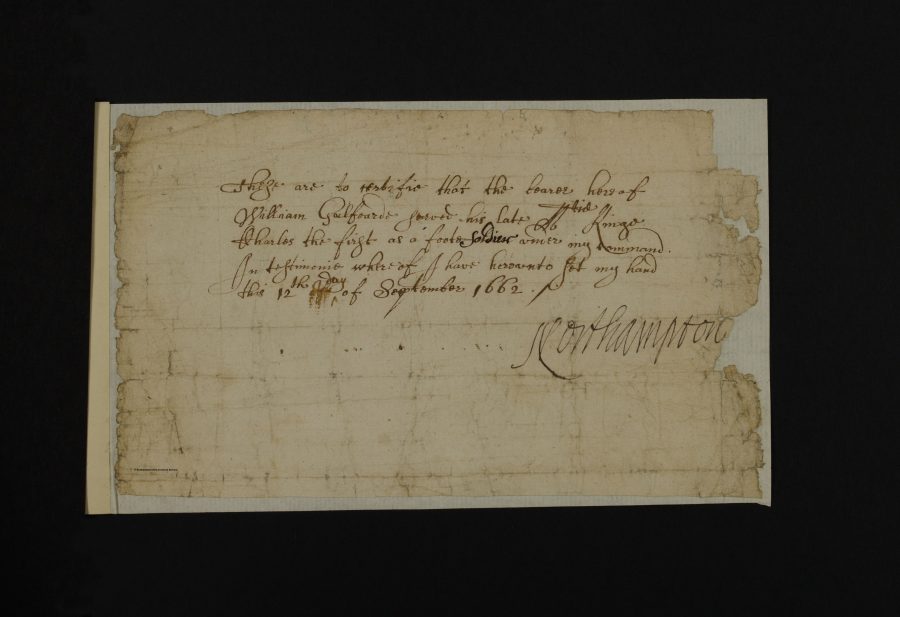 These are to certifie that the bearer hereof
William Gulfoarde served his late Ma:tie Kinge
Charles the first as a foote soldier under my Command.
In testimonie whereof I have herevnto set my hand
this 12th day of September 1662.
Northampton